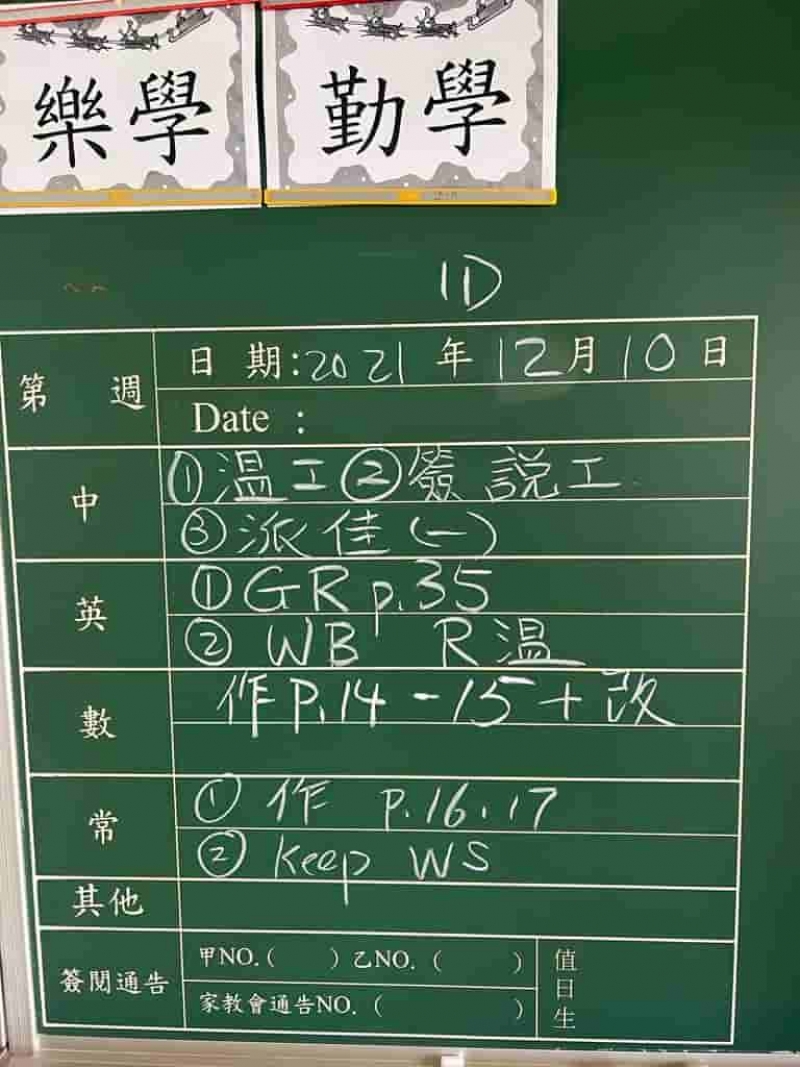 樂學
勤學
1D
第 週
日 期:2021 年 12月 10 日
Date :
中
①温工②簽 説工
③派佳(一)
英
①GR p.35
② WB R温
數
作P.14-15+改
常
① 作 p.16,17
② Keep WS
其他
簽閱通告
甲NO.( ) 乙NO. ( )
家教會通告NO. ( )
值日生